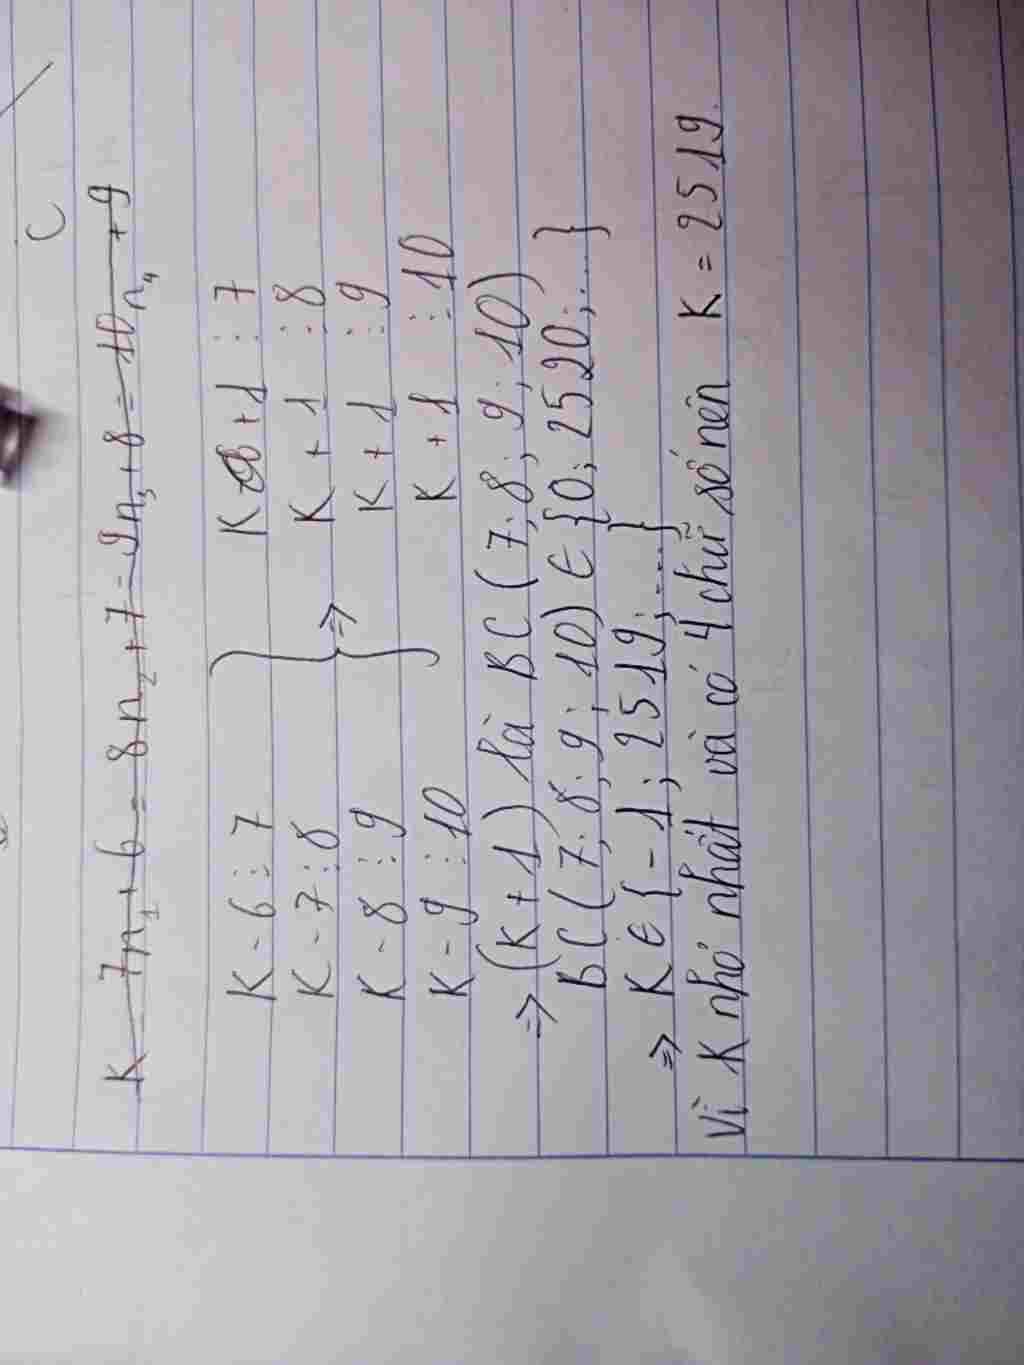 K = 7n₁ + 6 = 8n₂ + 7 = 9n₃ + 8 = 10n₄ + 9
K - 6 ⋮ 7 K + 1 ⋮ 7
K - 7 ⋮ 8 K + 1 ⋮ 8
K - 8 ⋮ 9 } => K + 1 ⋮ 9
K - 9 ⋮ 10 K + 1 ⋮ 10
=> (K + 1) là BC (7; 8; 9; 10)
BC (7; 8; 9; 10) ∈ {0; 2520; ...}
=> K ∈ {-1; 2519; ...}
Vì K nhỏ nhất và có 4 chữ số nên K = 2519.